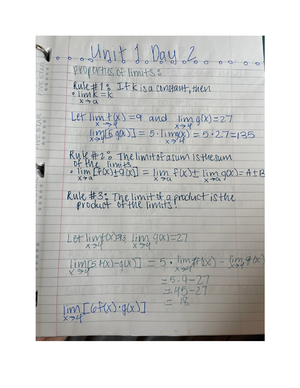 Unit 1 Day 2
Properties of limits:
Rule #1: If k is a constant, then
• lim k = k
x→a
Let lim f(x) = 9 and lim g(x) = 27
x→4 x→4
lim [5g(x)] = 5 · lim g(x) = 5 · 27 = 135
x→4 x→4
Rule #2: The limit of a sum is the sum
of the limits.
• lim [f(x) ± g(x)] = lim f(x) ± lim g(x) = A ± B
x→a x→a x→a
Rule #3: The limit of a product is the
product of the limits!
Let lim f(x) = 9 lim g(x) = 27
x→4 x→4
lim [5f(x) - g(x)] = 5 · lim f(x) - lim g(x)
x→4 x→4 x→4
= 5 · 9 - 27
= 45 - 27
= 18
lim [6f(x) · g(x)]
x→4